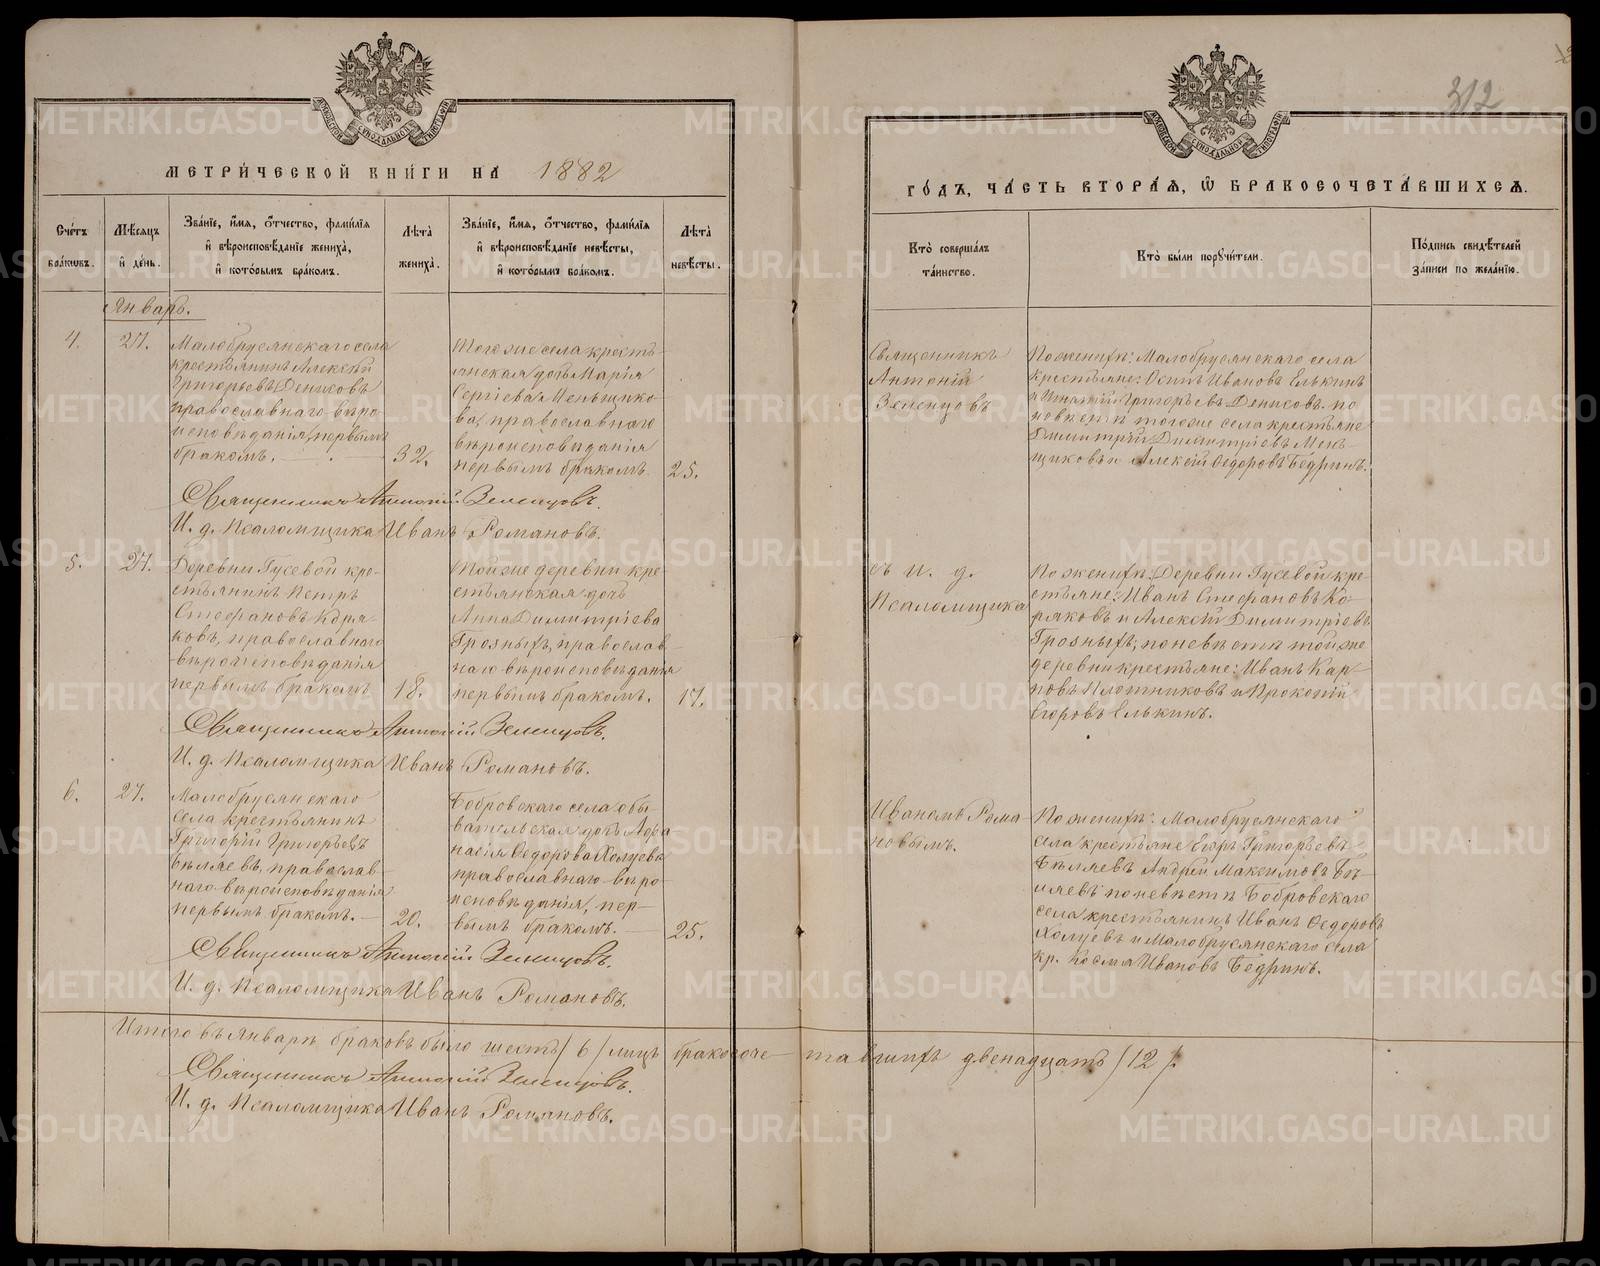 312
МЕТРИ́ЧЕСКОЙ КНИ́ГИ НА 1882
ГО́ДЪ, ЧА́СТЬ ВТОРА́Я, Ѿ БРАКОСОЧЕТА́ВШИХСЯ.
Сче́тъ бра́кѡвъ.
Мѣ́сяцъ и҆ де́нь.
Зва́нїе, и҆́мя, ѻ҆́тчество, фами́лїя
и҆ вѣроисповѣ́данїе жениха̀,
и҆ кото́рымъ бра́комъ.
Лѣ́та жениха̀.
Зва́нїе, и҆́мя, ѻ҆́тчество, фами́лїя
и҆ вѣроисповѣ́данїе невѣ́сты,
и҆ кото́рымъ бра́комъ.
Лѣ́та невѣ́сты.
Кто̀ соверша́лъ
та́инство.
Кто̀ бы́ли порꙋчи́тели.
По́дпись свидѣ́телей
за́писи по жела́нїю.
Январь.
4.
27.
Малобрусянскаго села
крестьянинъ Алексѣй
Григорьевъ Денисовъ
православнаго вѣро-
исповѣданія, первымъ
бракомъ.
32.
Тогоже села кресть-
янская дочь Марія
Сергіева Меньщико-
ва, православнаго
вѣроисповѣданія
первымъ бракомъ
25.
Священникъ
Антоній
Зеленцовъ
По женихѣ: Малобрусянскаго села
крестьяне: Осипъ Ивановъ Елькинъ
и Игнатій Григорьевъ Денисовъ. по
невѣстѣ тогоже села крестьяне
Димитрій Димитріевъ Мень-
щиковъ и Алексѣй Ѳедоровъ Бедринъ.
Священникъ Антоній Зеленцовъ.
И. д. Псаломщика Иванъ Романовъ.
5.
27.
Деревни Гусевой кре-
стьянинъ Петръ
Стефановъ Коря-
ковъ, православнаго
вѣроисповѣданія
первымъ бракомъ
18.
Тойже деревни кре-
стьянская дочь
Анна Димитріева
Грозныхъ, православ-
наго вѣроисповѣданія
первымъ бракомъ.
17.
съ и. д.
Псаломщика
По женихѣ: Деревни Гусевой кре-
стьяне: Иванъ Стефановъ Ко-
ряковъ и Алексѣй Димитріевъ
Грозныхъ; по невѣстѣ тойже
деревни крестьяне: Иванъ Кар-
повъ Плотниковъ и Прокопій
Егоровъ Елькинъ.
Священникъ Антоній Зеленцовъ.
И. д. Псаломщика Иванъ Романовъ.
6.
27.
Малобрусянскаго
села крестьянинъ
Григорій Григорьевъ
Бѣляевъ, православ-
наго вѣроисповѣданія
первымъ бракомъ.
20.
Бобровскаго села обы-
вательская дочь Афа-
насія Ѳедорова Холуева
православнаго вѣро-
исповѣданія, пер-
вымъ бракомъ.
25.
Иваномъ Рома-
новымъ.
По женихѣ: Малобрусянскаго
села крестьяне Егоръ Григорьевъ
Бѣляевъ Андрей Максимовъ Бѣ-
ляевъ по невѣстѣ Бобровскаго
села крестьянинъ Иванъ Ѳедоровъ
Холуевъ и Малобрусянскаго села
кр. Косма Ивановъ Бедринъ.
Священникъ Антоній Зеленцовъ.
И. д. Псаломщика Иванъ Романовъ.
Итого въ Январѣ браковъ было шесть /6/ лицъ бракосоче-тавшихся двенадцать /12/.
Священникъ Антоній Зеленцовъ.
И. д. Псаломщика Иванъ Романовъ.
METRIKI.GASO-URAL.RU